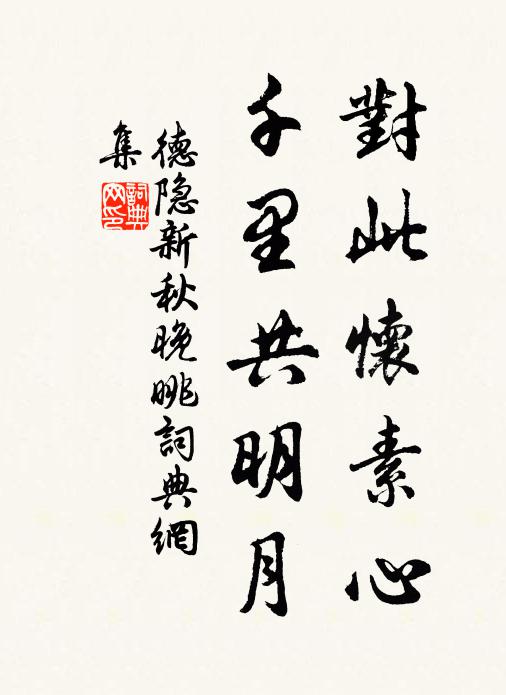 對此懷素心
千里共明月
德隐新秋晚眺詞典網
集
詞典网印